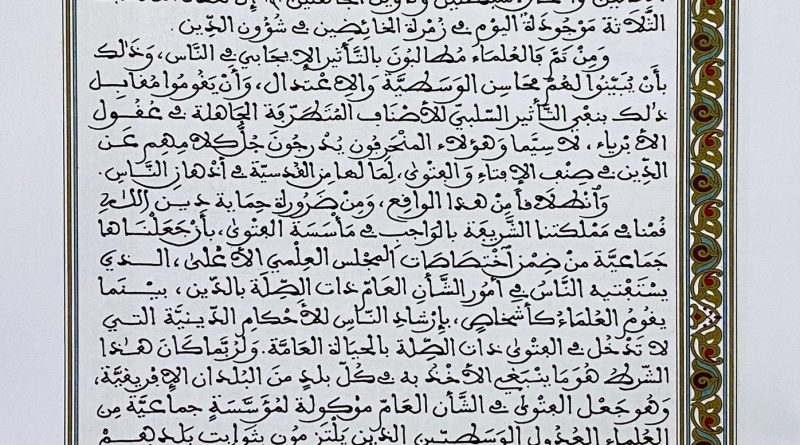 الثَّلَاثَةَ مَوْجُودَةٌ الْيَوْمَ فِي زُمْرَةِ الْخَائِضِينَ فِي شُؤُونِ الدِّينِ.
وَمِنْ ثَمَّ فَالْعُلَمَاءُ مُطَالَبُونَ بِالتَّأْثِيرِ الْإِيجَابِي فِي النَّاسِ، وَذَلِكَ
بِأَنْ يُبَيِّنُوا لَهُمْ مَحَاسِنَ الْوَسَطِيَّةِ وَالِاعْتِدَالِ، وَأَنْ يَقُومُوا مُقَابِلَ
ذَلِكَ بِنَفْيِ التَّأْثِيرِ السَّلْبِيِّ لِلْأَصْنَافِ الْمُتَطَرِّفَةِ الْجَاهِلَةِ فِي عُقُولِ
الْأَبْرِيَاءِ، لَا سِيَّمَا وَهَؤُلَاءِ الْمُنْحَرِفُونَ يُدْرِجُونَ جُلَّ كَلَامِهِمْ عَنِ
الدِّينِ فِي صِنْفِ الْإِفْتَاءِ وَالْفَتْوَى، لِمَا لَهَا مِنَ الْقُدْسِيَّةِ فِي أَذْهَانِ النَّاسِ.
وَانْطِلَاقاً مِنْ هَذَا الْوَاقِعِ، وَمِنْ ضَرُورَةِ حِمَايَةِ دِينِ اللهِ
قُمْنَا فِي مَمْلَكَتِنَا الشَّرِيفَةِ بِالْوَاجِبِ فِي مَأْسَسَةِ الْفَتْوَى، بِأَنْ جَعَلْنَاهَا
جَمَاعِيَّةً مِنْ ضِمْنِ اخْتِصَاصَاتِ الْمَجْلِسِ الْعِلْمِي الْأَعْلَى، الَّذِي
يَسْتَفْتِيهِ النَّاسُ فِي أُمُورِ الشَّأْنِ الْعَامِّ ذَاتِ الصِّلَةِ بِالدِّينِ، بَيْنَمَا
يَقُومُ الْعُلَمَاءُ كَأَشْخَاصٍ، بِإِرْشَادِ النَّاسِ لِلْأَحْكَامِ الدِّينِيَّةِ الَّتِي
لَا تَدْخُلُ فِي الْفَتْوَى ذَاتِ الصِّلَةِ بِالْحَيَاةِ الْعَامَّةِ. وَلَرُبَّمَا كَانَ هَذَا
الشَّرْطُ هُوَ مَا يَنْبَغِي الْأَخْذُ بِهِ فِي كُلِّ بَلَدٍ مِنَ الْبُلْدَانِ الْإِفْرِيقِيَّةِ،
وَهُوَ جَعْلُ الْفَتْوَى فِي الشَّأْنِ الْعَامِّ مَوْكُولَةً لِمُؤَسَّسَةٍ جَمَاعِيَّةٍ مِنَ
الْعُلَمَاءِ الْعُدُولِ الْوَسَطِيِّينَ الَّذِينَ يَلْتَزِمُونَ بِثَوَابِتِ بَلَدِهِمْ